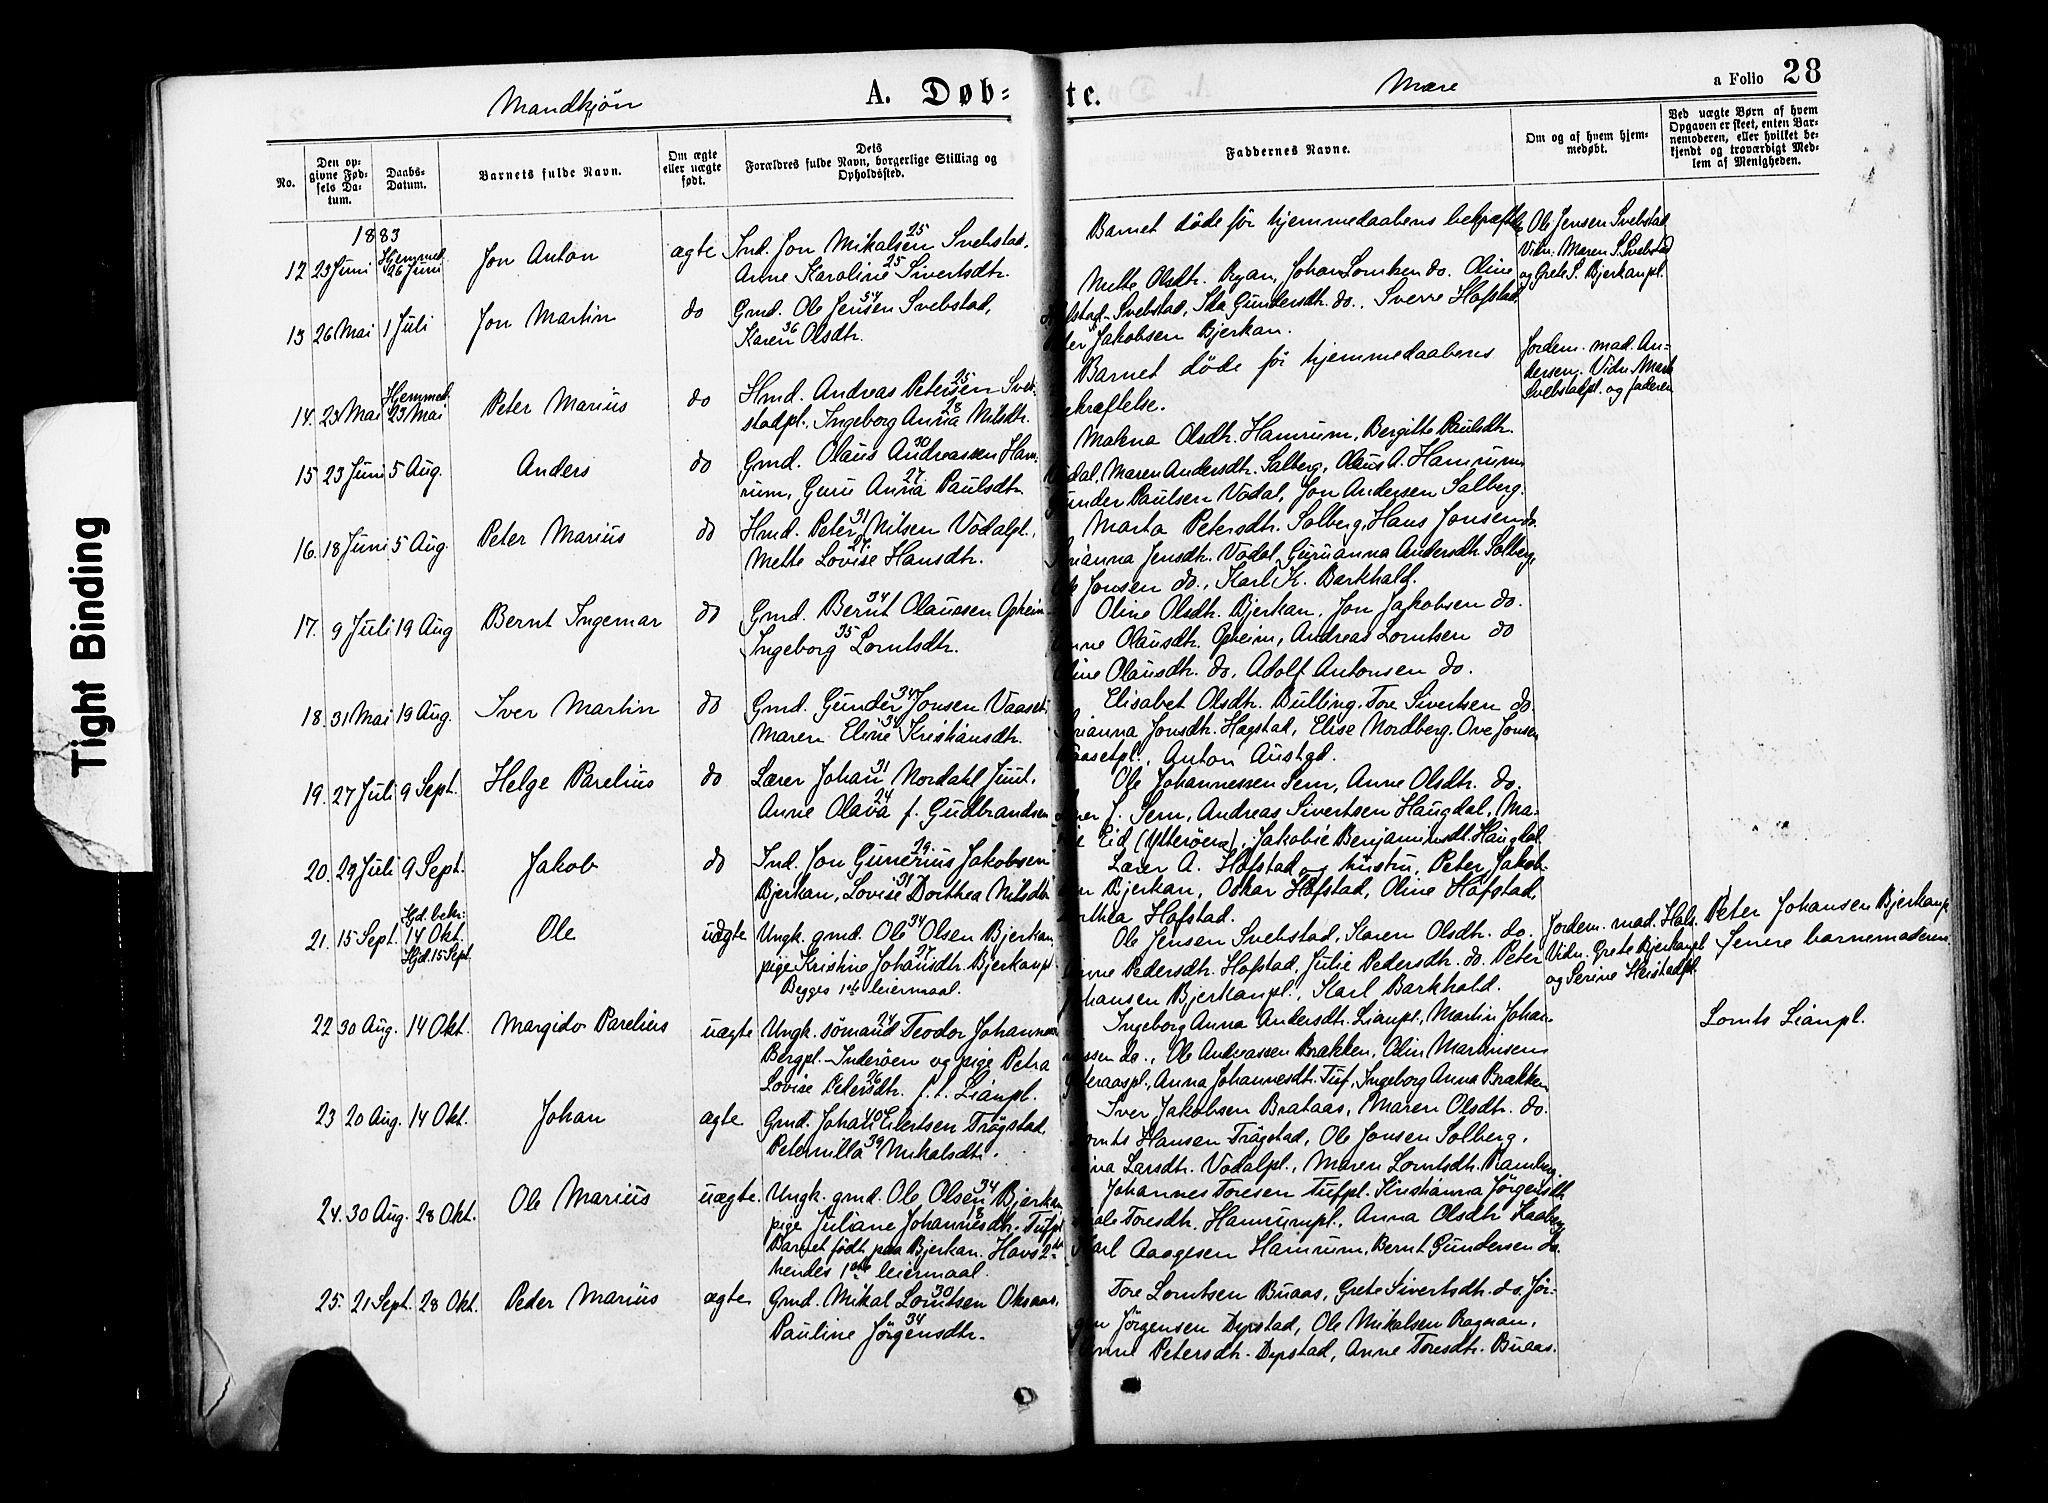 Tight Binding
Mandkjøn
A. Døb-
te.
Mære
a Folio 28
No.
Den opgivne Fødsels Datum.
Daabs-Datum.
Barnets fulde Navn.
Om ægte eller uægte født.
Dets Forældres fulde Navn, borgerlige Stilling og Opholdssted.
Faddernes Navne.
Om og af hvem hjemmedøbt.
Ved uægte Børn af hvem Opgaven er skeet, enten Barnemoderen, eller hvilket bekjendt og troværdigt Medlem af Menigheden.
1883
12 23 Juni Hjemmed. 26 Juni Jon Anton ægte Ind. Jon Mikalsen 25 Svebstad,
Anne Karoline 25 Sivertsdtr.
Barnet døde før hjemmedaabens bekræftelse
Ole Jensen Svebstad
Vidn. Maren S. Svebstad
og Grete S. Bjerkanpl.
13 26 Mai 1 Juli Jon Martin do Gmd. Ole Jensen 34 Svebstad,
Karen 36 Olsdtr.
Mette Olsdtr. Ryan, Johan Lomtsen do. Oline
Svebstad, Ida Gundersdtr. do., Sverre Hofstad
Jakobsen Bjerkan.
14. 23 Mai Hjemmed. 23 Mai Peter Marius do Hmd. Andreas Petersen 25 Sveb-
stadpl., Ingeborg Anna 28 Nilsdtr.
Barnet døde før hjemmedaabens
bekræftelse.
Jordem. mad. An-
dersen. Vidn.
Svebstadpl. og faderen
15 23 Juni 5 Aug. Anders do Gmd. Olaus Andreassen 30 Ham-
rum, Guru Anna 27 Paulsdtr.
Malena Olsdtr. Hamrum, Bergitte Paulsdtr.
Vodal, Maren Andersdtr. Salberg, Olaus A. Hamrum
Gunder Paulsen Vodal, Jon Andersen Salberg.
16. 18 Juni 5 Aug. Peter Marius do Hmd. Peter 31 Nilsen Vodalpl.,
Mette Lovise 27 Hansdtr.
Marta Petersdtr. Solberg, Hans Jonsen do.
Jensdtr. Vodal, Guruanna Andersdtr. Solberg,
Jonsen do., Karl K. Barkhald.
17. 9 Juli 19 Aug Bernt Ingemar do Gmd. Bernt 34 Olaussen Opheim
Ingeborg 35 Lomtsdtr.
Oline Olsdtr. Bjerkan, Jon Jakobsen do.
Olausdtr. Opheim, Andreas Lomtsen do
Olausdtr. do, Adolf Antonsen do.
18. 31 Mai 19 Aug. Iver Martin do Gmd. Gunder 34 Jonsen Vaaset.
Maren Eline 34 Kristiansdtr.
Elisabet Olsdtr. Bulling, Tore Sivertsen do.
Jonsdtr. Hagstad, Elise Nordberg. Ove Jonsen
Vaasetpl., Anton Austad.
19. 27 Juli 9 Sept. Helge Parelius do Lærer Johan 31 Nordahl Juul,
Anne Olava 24 f. Gudbrandsen
Ole Johannessen Sem, Anne Olsdtr. do.
J. Sem, Andreas Sivertsen Haugdal, Ma-
Eid (Ytterøen), Jakobie Benjaminsdtr. Haugdal
20. 29 Juli 9 Sept. Jakob do Ind. Jon Gunerius 29 Jakobsen
Bjerkan, Lovise 31 Dorthea Nilsdtr.
Lærer A. Hofstad og hustru, Peter Jakob-
sen Bjerkan, Oskar Hofstad, Oline Hofstad,
Dorthea Hofstad.
21. 15 Sept. Hjd. bekr. 14 Okt. Hjd. 15 Sept. Ole uægte Ungk. gmd. Ole 34 Olsen Bjerkan,
pige Kristine 27 Johansdtr. Bjerkanpl.
Begges 1ste leiermaal.
Ole Jensen Svebstad, Karen Olsdtr. do.
Pedersdtr. Hofstad, Julie Pedersdtr. do. Peter
Johansen Bjerkanpl., Karl Barkhald.
Jordem. mad. Hals.
Vidn. Grete Bjerkanpl
og Serine Heistadpl.
Peter Johansen Bjerkanpl.
Senere barnemoderen
22 30 Aug. 14 Okt. Margido Parelius uægte Ungk. sømand 24 Teodor Johannesen
Bergpl.-Inderøen og pige Petra
Lovise Petersdtr. 26 f. t. Lianpl.
Ingeborg Anna Andersdtr. Lianpl., Martin Johan-
nessen do., Ole Andreassen Brækken, Olin Martinsen
Anna Johannesdtr. Tuf, Ingeborg Anna Brækken
Lomts Lianpl.
23 20 Aug. 14 Okt. Johan ægte Gmd. Johan 40 Eilertsen Trøgstad,
Peternilla 39 Mikalsdtr.
Iver Jakobsen Brataas, Maren Olsdtr. do.
Lomts Hansen Trøgstad, Ole Jonsen Solberg,
Larsdtr. Vodalpl., Maren Lomtsdtr. Ramberg
24. 30 Aug. 28 Okt. Ole Marius uægte. Ungk. gmd. Ole Olsen 34 Bjerkan
pige Juliane Johannesdtr. 18 Tufpl.
Barnet født paa Bjerkan. Hans 2det
hendes 1ste leiermaal.
Johannes Toresen Tufpl. Kristianna Jørgensdtr.
Toresdtr. Hamrumpl., Anna Olsdtr
Karl Aagesen Hamrum, Bernt Gundersen do.
25. 21 Sept. 28 Okt. Peder Marius ægte Gmd. Mikal Lomtsen 30 Oksaas,
Pauline Jørgensdtr. 34
Tore Lomtsen Buaas, Grete Sivertsdtr. do. Jør-
gen Jørgensen Dypstad, Ole Mikalsen Ragnan,
Petersdtr. Dypstad, Anne Toresdtr. Buaas.